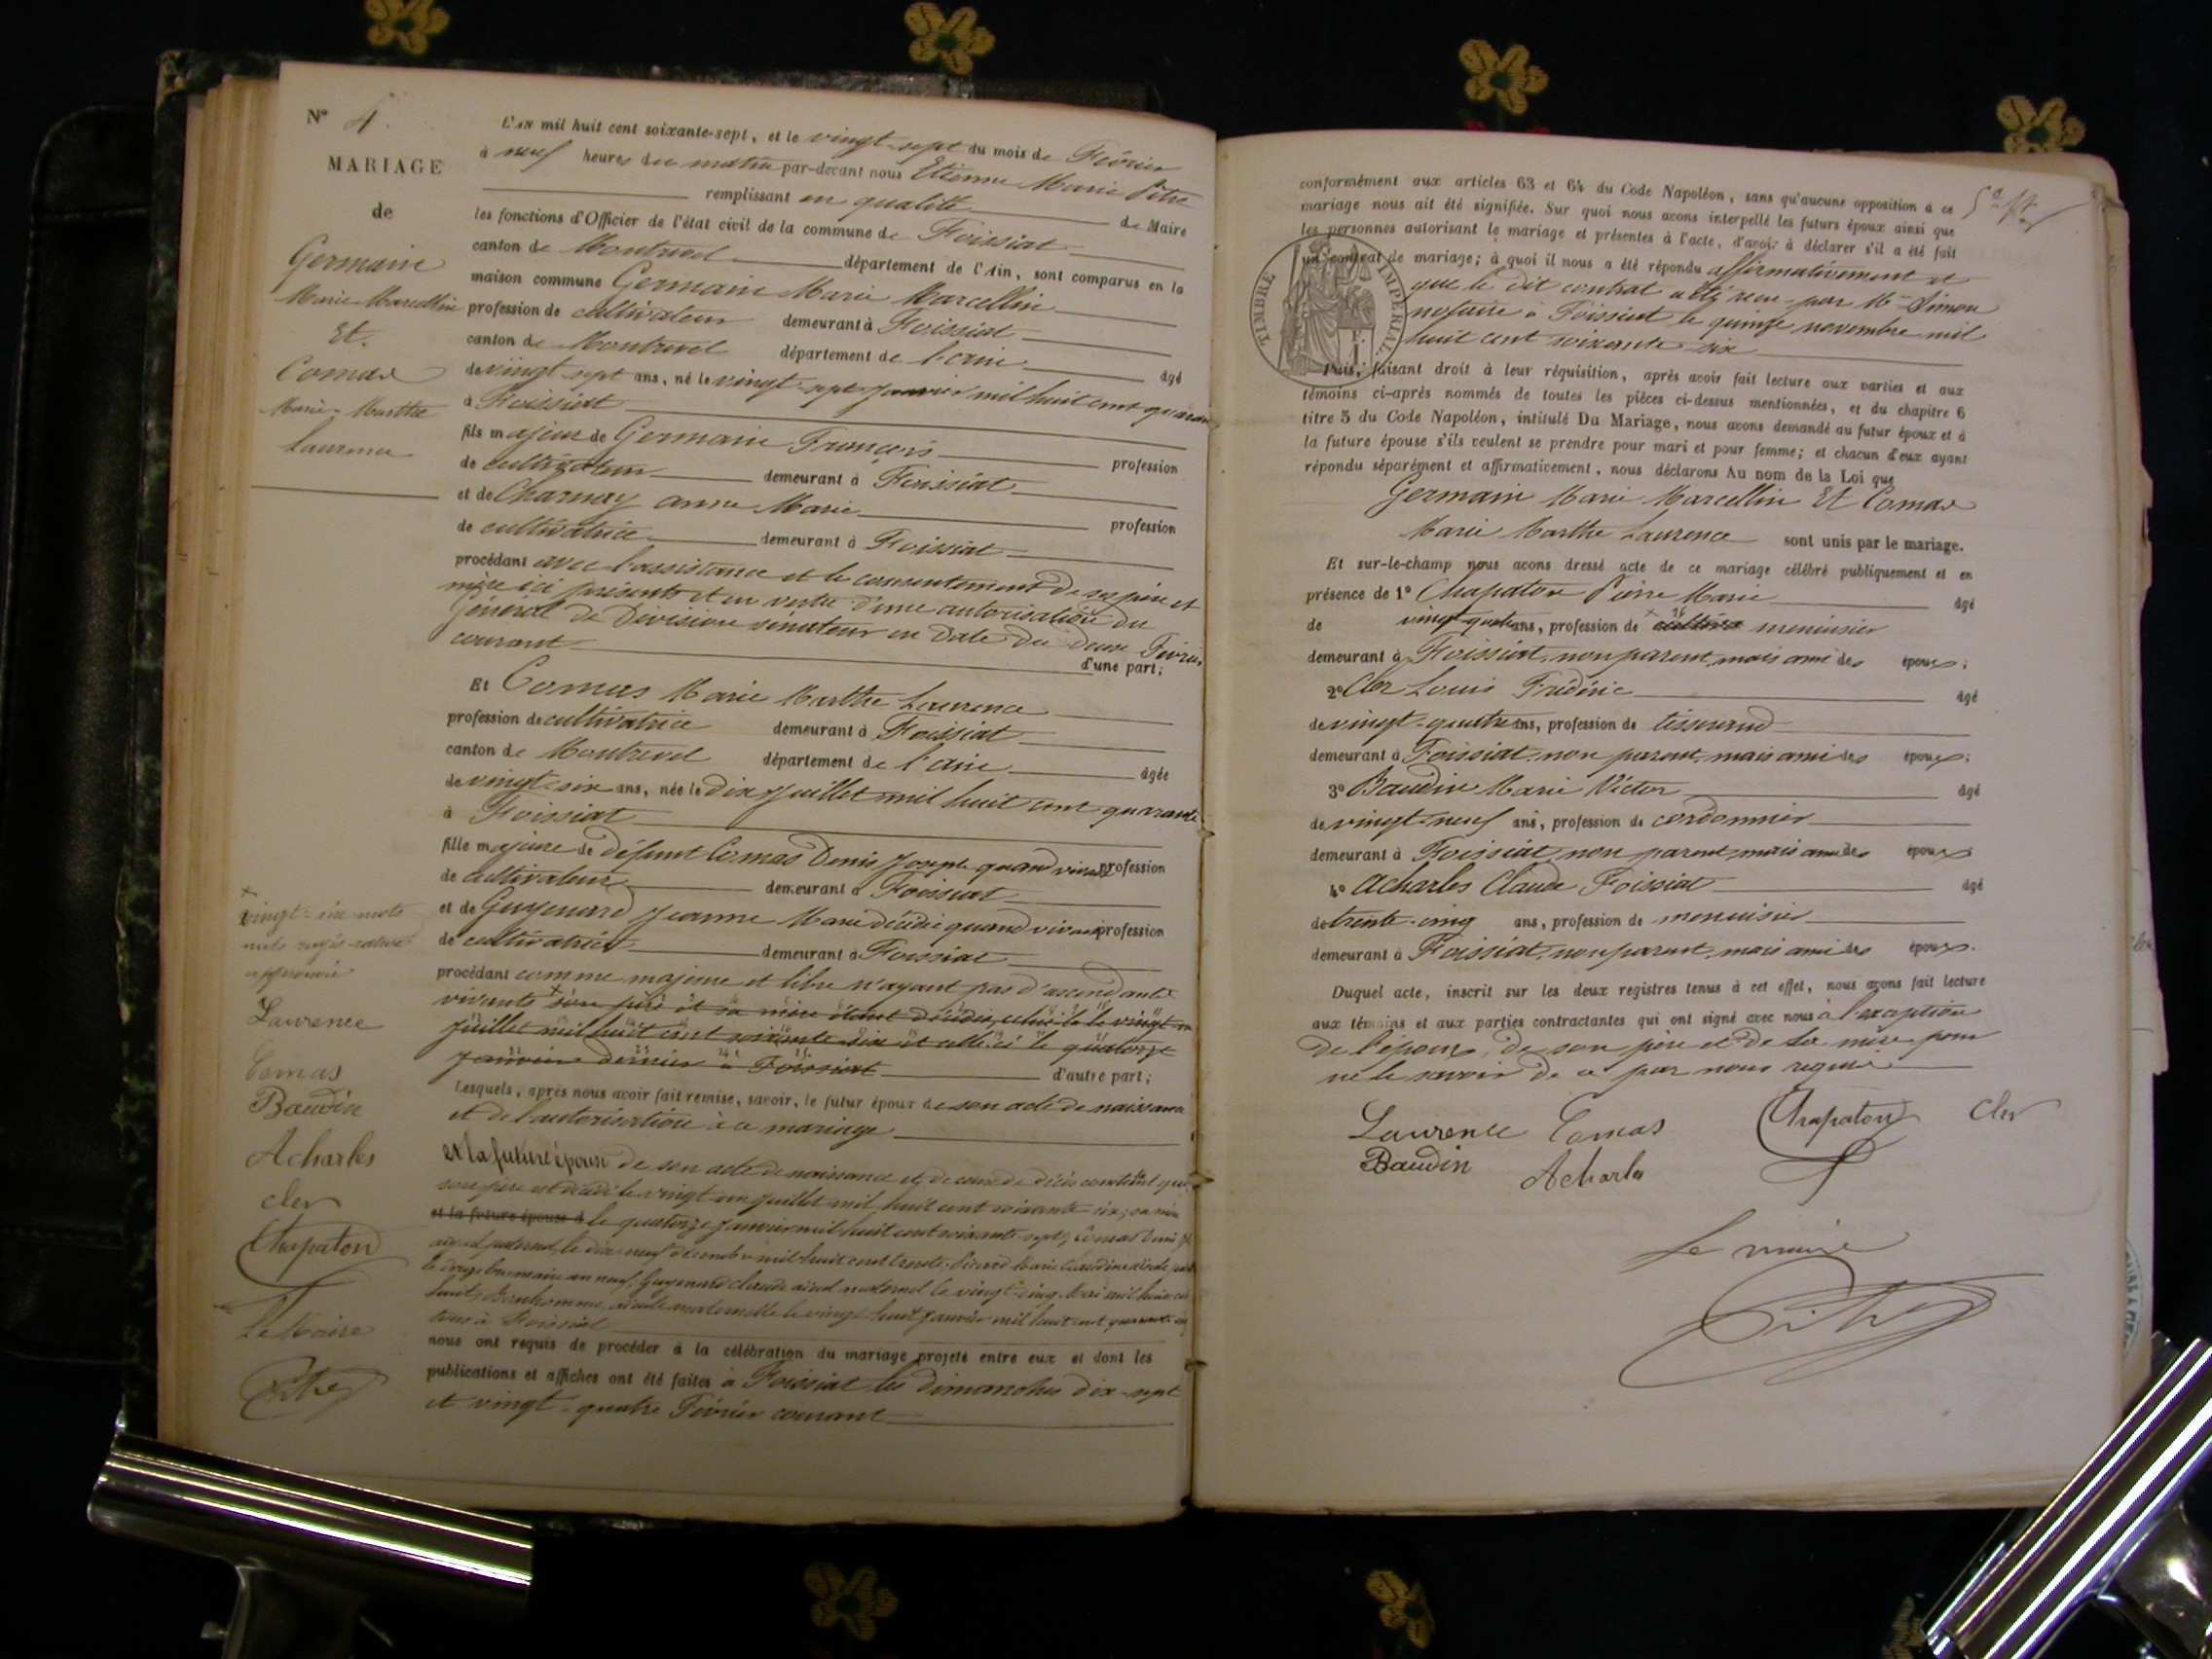 N° 4.
MARIAGE
de
Germain
Marie Marcellin
Et.
Comas
Marie-Marthe
Laurence
L'AN mil huit cent soixante-sept, et le vingt-sept du mois de Février
à neuf heures du matin par-devant nous Etienne Marie Pitre
remplissant en qualité de Maire
les fonctions d'Officier de l'état civil de la commune de Foissiat
canton de Montrevel département de l'Ain, sont comparus en la
maison commune Germain Marie Marcellin
profession de cultivateur demeurant à Foissiat
canton de Montrevel département de l'ain âgé
de vingt-sept ans, né le vingt-sept Janvier mil huit cent quarante
à Foissiat
fils majeur de Germain François profession
de cultivateur demeurant à Foissiat
et de Charnay anne Marie profession
de cultivatrice demeurant à Foissiat
procédant avec l'assistance et le consentement de ses père et
mère ici présents et en vertu d'une autorisation du
Général de Division sénateur en date du douze Février
courant d'une part;
Et Comas Marie Marthe Laurence
profession de cultivatrice demeurant à Foissiat
canton de Montrevel département de l'ain âgée
de vingt-six ans, née le dix Juillet mil huit cent quarante
à Foissiat
fille majeure de défunt Comas Denis Joseph quand vivait profession
de cultivateur demeurant à Foissiat
et de Guyenard Jeanne Marie décédée quand vivait profession
de cultivatrice demeurant à Foissiat
procédant comme majeure et libre n'ayant pas d'ascendants
vivants son père et sa mère étant décédés, celui-là le vingt-un
Juillet mil huit cent soixante six et celle-ci le quatorze
Janvier dernier à Foissiat d'autre part;
Lesquels, après nous avoir fait remise, savoir, le futur époux de son acte de naissance
et de l'autorisation à ce mariage
et la future épouse de son acte de naissance et de ceux de décès constatant que
son père est décédé le vingt un juillet mil huit cent soixante six; sa mère
et la future épouse d le quatorze Janvier mil huit cent soixante sept; Comas Denis
aieul paternel, le dix neuf décembre mil huit cent trente; Marie Claudine aïeule
le brumaire an neuf; Guyenard claude aïeul maternel le vingt-cinq Mai mil huit cent
Bonhomme, aïeule maternelle le vingt-huit Janvier mil huit cent quarante
tous à Foissiat
nous ont requis de procéder à la célébration du mariage projeté entre eux et dont les
publications et affiches ont été faites à Foissiat les dimanches dix-sept
et vingt-quatre Février courant
vingt-six mots
nuls rayés
approuvé
Laurence
Comas
Baudin
Acharles
cler
Chapaton
Le Maire
Pitre
conformément aux articles 63 et 64 du Code Napoléon, sans qu'aucune opposition à ce
mariage nous ait été signifiée. Sur quoi nous avons interpellé les futurs époux ainsi que
les personnes autorisant le mariage et présentes à l'acte, d'avoir à déclarer s'il a été fait
un contrat de mariage; à quoi il nous a été répondu affirmativement et
que le dit contrat a été reçu par Me Simon
notaire à Foissiat le quinze novembre mil
huit cent soixante six
TIMBRE IMPERIAL
Puis, faisant droit à leur réquisition, après avoir fait lecture aux parties et aux
témoins ci-après nommés de toutes les pièces ci-dessus mentionnées, et du chapitre 6
titre 5 du Code Napoléon, intitulé Du Mariage, nous avons demandé au futur époux et à
la future épouse s'ils veulent se prendre pour mari et pour femme; et chacun d'eux ayant
répondu séparément et affirmativement, nous déclarons Au nom de la Loi que
Germain Marie Marcellin Et Comas
Marie Marthe Laurence sont unis par le mariage.
Et sur-le-champ nous avons dressé acte de ce mariage célébré publiquement et en
présence de 1° Chapaton Pierre Marie âgé
de vingt quatre ans, profession de menuisier
demeurant à Foissiat, non parent, mais ami des époux;
2° Cler Louis Frédéric âgé
de vingt-quatre ans, profession de tisserand
demeurant à Foissiat non parent, mais ami des époux;
3° Baudin Marie Victor âgé
de vingt-neuf ans, profession de cordonnier
demeurant à Foissiat, non parent, mais ami des époux
4° Acharles Claude Foissiat âgé
de trente-cinq ans, profession de menuisier
demeurant à Foissiat, non parent, mais ami des époux.
Duquel acte, inscrit sur les deux registres tenus à cet effet, nous avons fait lecture
aux témoins et aux parties contractantes qui ont signé avec nous à l'exception
de l'époux, de son père et de sa mère pour
ne le savoir de ce par nous requis
Laurence Comas Chapaton Cler
Baudin Acharles
Le maire
Pitre